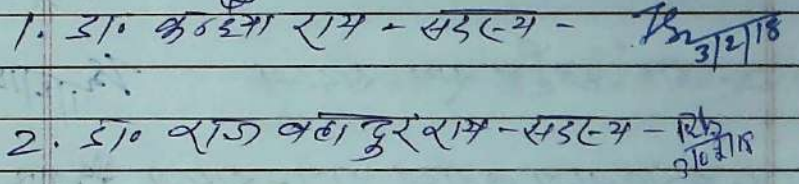 1. डा० कन्हैया राय - सदस्य - 3/2/18
2. डा० राज बहादुर राय - सदस्य -